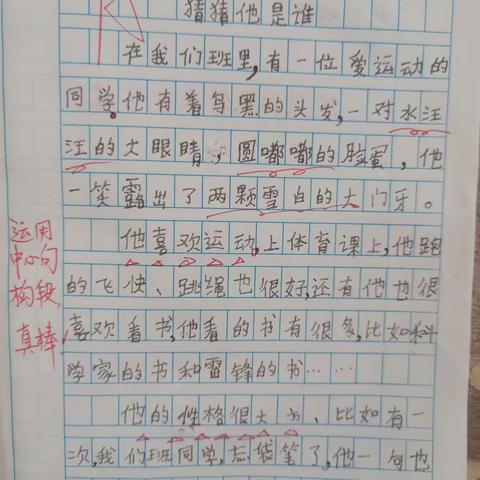 猜猜他是谁
在我们班里,有一位爱运动的
同学。他有着乌黑的头发,一对水汪
汪的大眼睛,圆嘟嘟的脸蛋,他
一笑露出了两颗雪白的大门牙。
他喜欢运动,上体育课上,他跑
的飞快、跳绳也很好,还有他也很
喜欢看书,他看的书有很多,比如科
学家的书和雷锋的书……
他的性格很大方、比如有一
次,我们班同学,忘袋笔了,他一句也
运用
中心句
构段,
真棒!